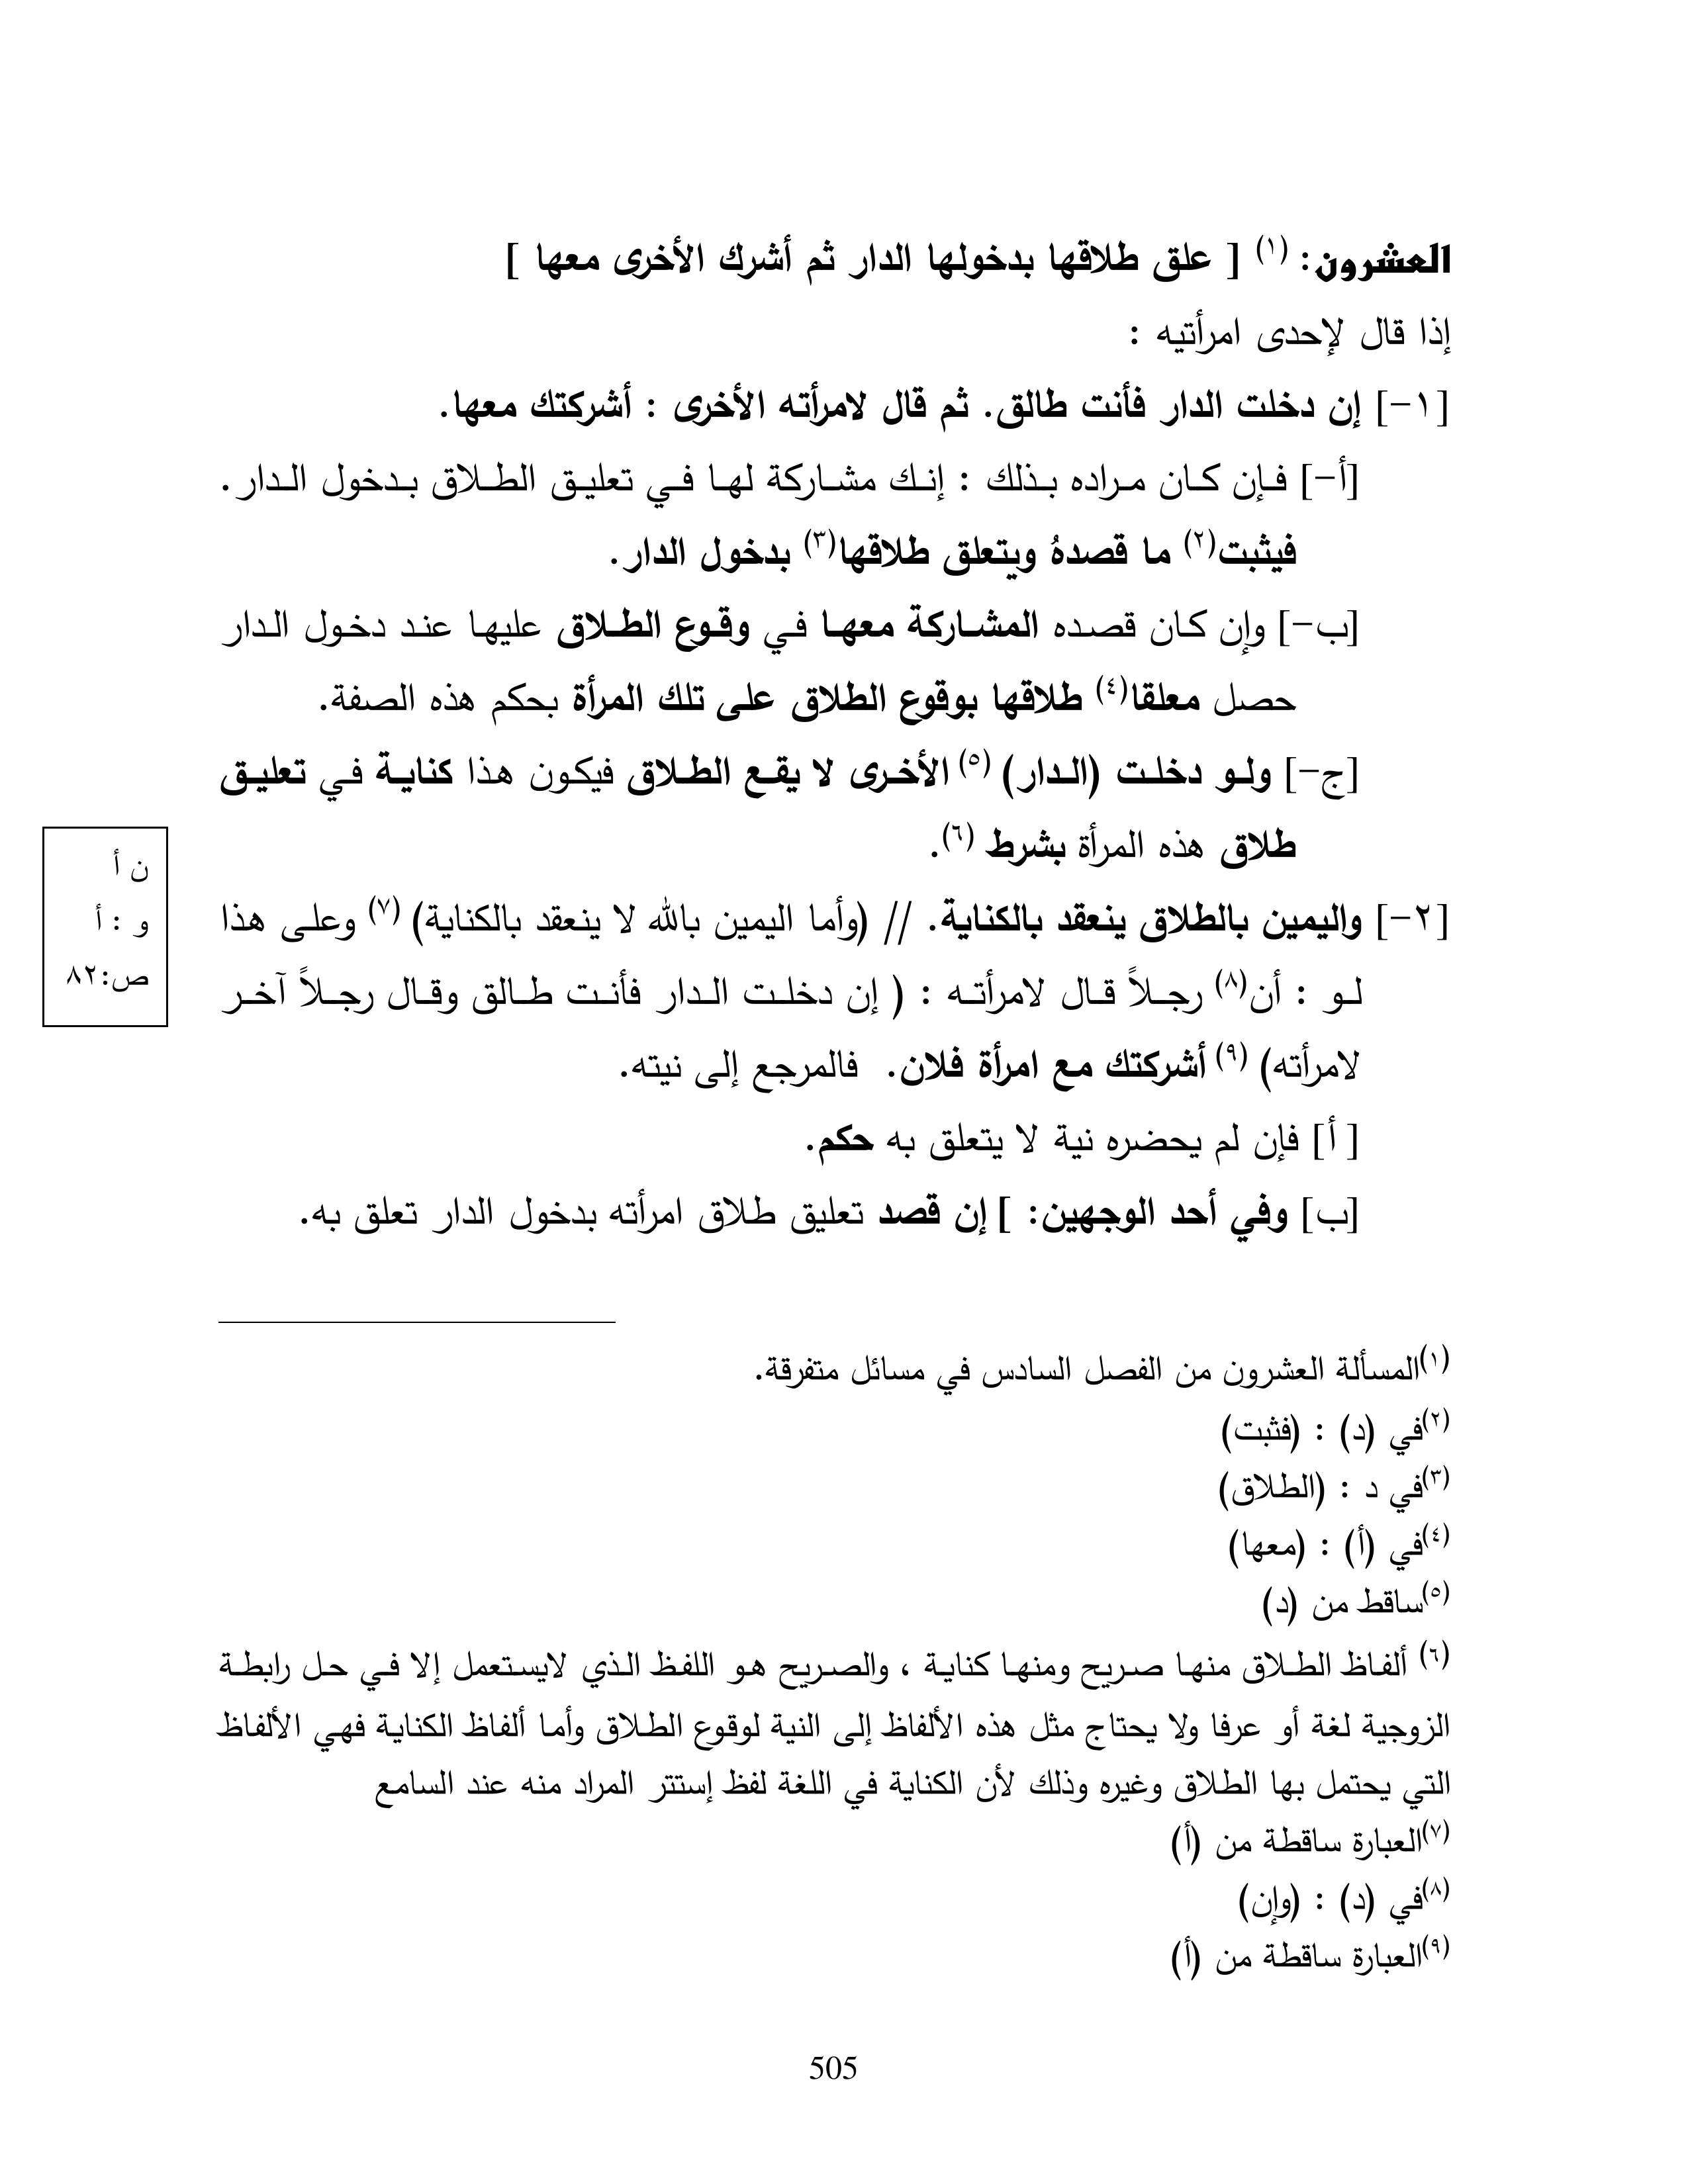 العشرون: (١) [ علق طلاقها بدخولها الدار ثم أشرك الأخرى معها ]
إذا قال لإحدى امرأتيه :
[١-] إن دخلت الدار فأنت طالق. ثم قال لامرأته الأخرى : أشركتك معها.
[أ-] فإن كان مراده بذلك : إنك مشاركة لها في تعليق الطلاق بدخول الدار.
فيثبت(٢) ما قصدهُ ويتعلق طلاقها(٣) بدخول الدار.
[ب-] وإن كان قصده المشاركة معها في وقوع الطلاق عليها عند دخول الدار
حصل معلقا(٤) طلاقها بوقوع الطلاق على تلك المرأة بحكم هذه الصفة.
[ج-] ولو دخلت (الدار) (٥) الأخرى لا يقع الطلاق فيكون هذا كناية في تعليق
طلاق هذه المرأة بشرط (٦).
[٢-] واليمين بالطلاق ينعقد بالكناية. // (وأما اليمين بالله لا ينعقد بالكناية) (٧) وعلى هذا
لو : أن(٨) رجلاً قال لامرأته : ( إن دخلت الدار فأنت طالق وقال رجلاً آخر
لامرأته) (٩) أشركتك مع امرأة فلان. فالمرجع إلى نيته.
[ أ] فإن لم يحضره نية لا يتعلق به حكم.
[ب] وفي أحد الوجهين: ] إن قصد تعليق طلاق امرأته بدخول الدار تعلق به.
ن أ
و : أ
ص:٨٢
(١)المسألة العشرون من الفصل السادس في مسائل متفرقة.
(٢)في (د) : (فثبت)
(٣)في د : (الطلاق)
(٤)في (أ) : (معها)
(٥)ساقط من (د)
(٦) ألفاظ الطلاق منها صريح ومنها كناية ، والصريح هو اللفظ الذي لايستعمل إلا في حل رابطة
الزوجية لغة أو عرفا ولا يحتاج مثل هذه الألفاظ إلى النية لوقوع الطلاق وأما ألفاظ الكناية فهي الألفاظ
التي يحتمل بها الطلاق وغيره وذلك لأن الكناية في اللغة لفظ إستتر المراد منه عند السامع
(٧)العبارة ساقطة من (أ)
(٨)في (د) : (وإن)
(٩)العبارة ساقطة من (أ)
505